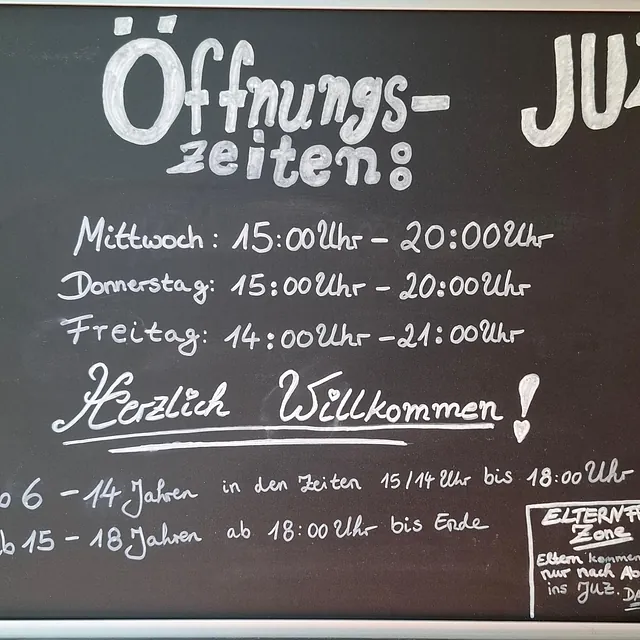 Öffnungs-
zeiten:
JUZ
Mittwoch: 15:00 Uhr - 20:00 Uhr
Donnerstag: 15:00 Uhr - 20:00 Uhr
Freitag: 14:00 Uhr - 21:00 Uhr
Herzlich Willkommen!
6 - 14 Jahren in den Zeiten 15/14 Uhr bis 18:00 Uhr
ab 15 - 18 Jahren ab 18:00 Uhr bis Ende
Zone
Eltern kommen
nur nach
ins JUZ.